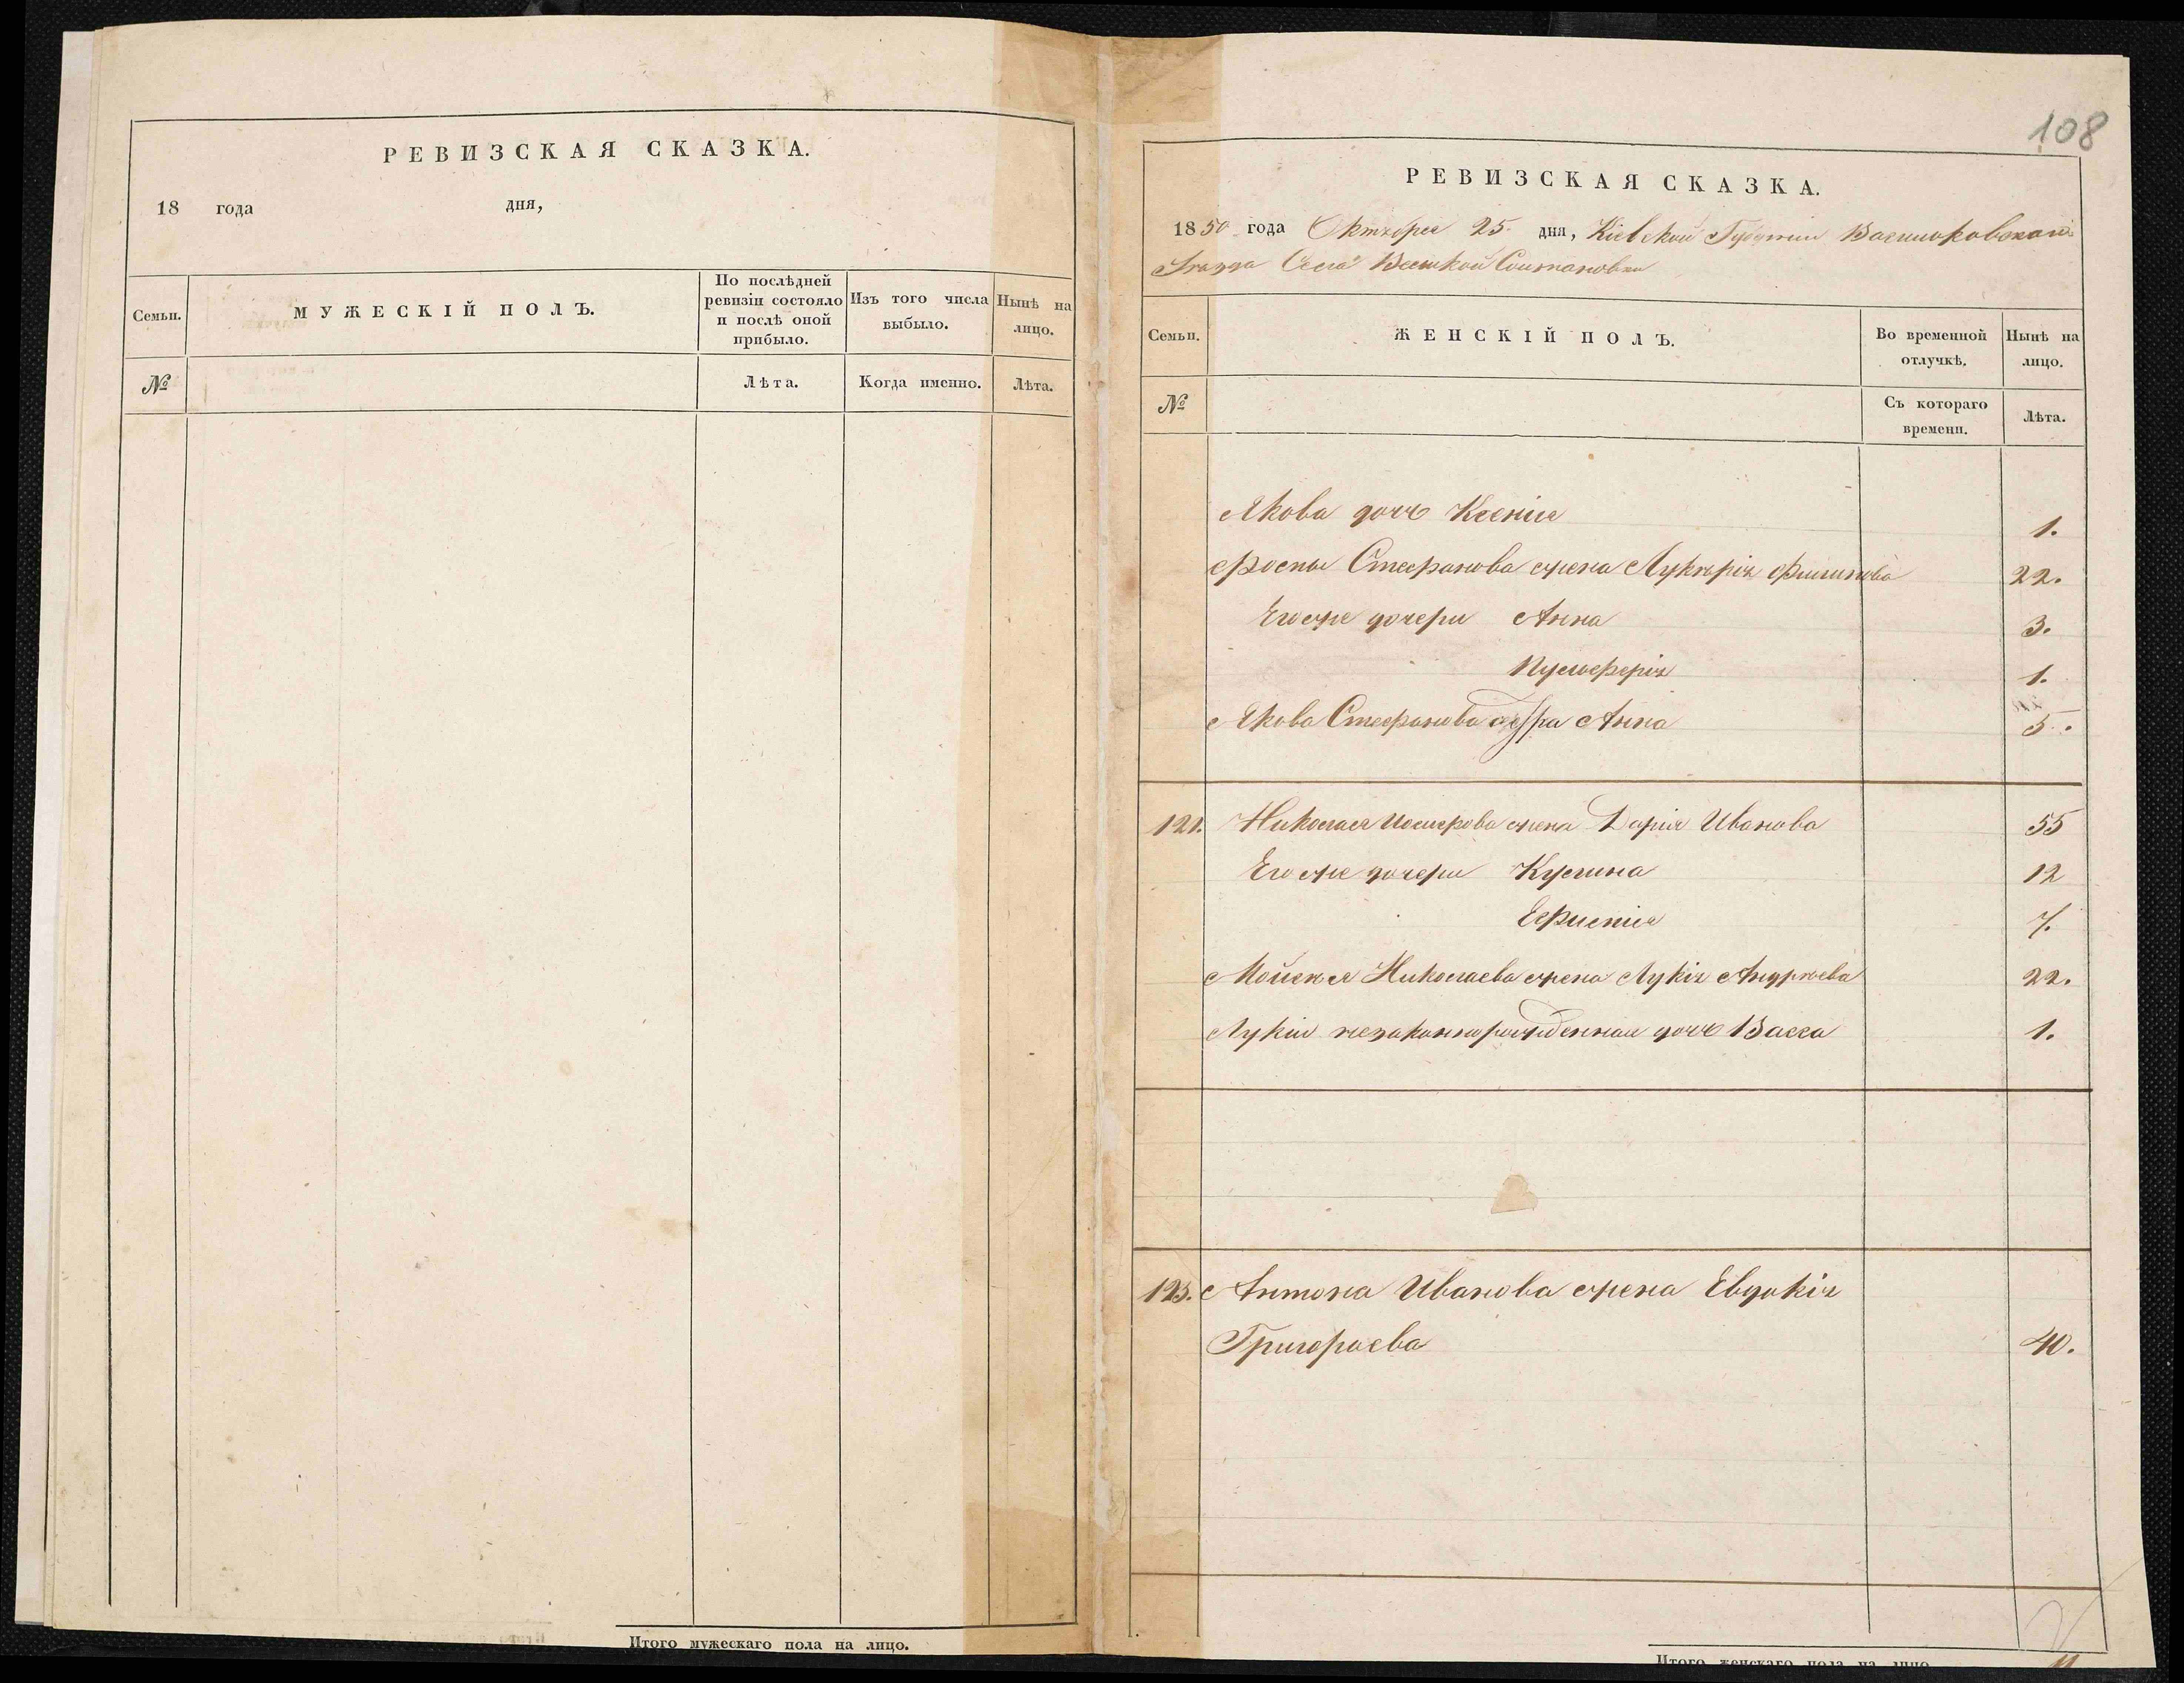 РЕВИЗСКАЯ СКАЗКА.
18 года дня,
Семьи.
МУЖЕСКІЙ ПОЛЪ.
По послѣдней
ревизіи состояло
и послѣ оной
прибыло.
Изъ того числа
выбыло.
Нынѣ на
лицо.
№
Лѣта.
Когда именно.
Лѣта.
Итого мужескаго пола на лицо.
108
РЕВИЗСКАЯ СКАЗКА.
1850 года Октября 25 дня, Кіевской Губерніи Васильковскаго
Уѣзда Села Великой Солтановки
Семьи.
ЖЕНСКІЙ ПОЛЪ.
Во временной
отлучкѣ.
Нынѣ на
лицо.
№
Съ котораго
времени.
Лѣта.
Якова дочь Ксенія 1.
Фоспы Стефанова жена Лукѣрія Филипова 22.
Его же дочери Анна 3.
Пулхерія 1.
Якова Стефанова сестра Анна 5.
121. Николая жена Дарія Иванова 55
Его же дочери Кулина 12
Ефимія 7.
Мойсея Николаева жена Лукія Андрѣева 22.
Лукіи незаконнорожденная дочь Васса 1.
123. Антона Иванова жена Евдокія
Григорьева 40.
Итого женскаго пола на лицо
11